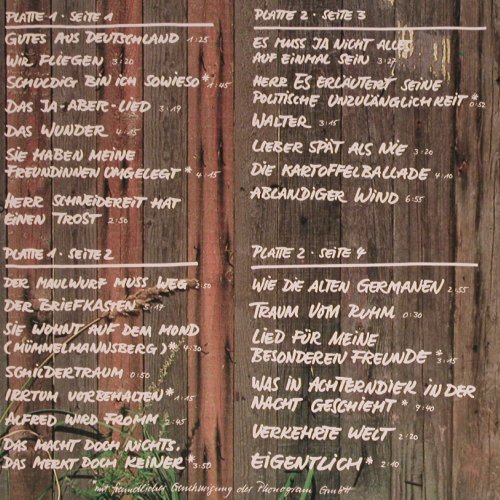 PLATTE 1 · SEITE 1
GUTES AUS DEUTSCHLAND 1:25
WIR FLIEGEN 3:20
SCHULDIG BIN ICH SOWIESO* 1:45
DAS JA-ABER-LIED 3:19
DAS WUNDER 4:15
SIE HABEN MEINE
FREUNDINNEN UMGELEGT* 4:15
HERR SCHNEIDEREIT HAT
EINEN TROST 2:50
PLATTE 1 · SEITE 2
DER MAULWURF MUSS WEG 2:50
DER BRIEFKASTEN 5:17
SIE WOHNT AUF DEM MOND
(HÜMMELMANNSBERG)* 4:30
SCHILDERTRAUM 0:50
IRRTUM VORBEHALTEN* 1:15
ALFRED WIRD FROMM 2:45
DAS MACHT DOCH NICHTS,
DAS MERKT DOCH KEINER* 3:50
PLATTE 2 · SEITE 3
ES MUSS JA NICHT ALLES
AUF EINMAL SEIN 3:27
HERR ES ERLÄUTERT SEINE
POLITISCHE UNZULÄNGLICHKEIT* 0:52
WALTER 3:15
LIEBER SPÄT ALS NIE 3:20
DIE KARTOFFELBALLADE 4:10
ABLANDIGER WIND 6:55
PLATTE 2 · SEITE 4
WIE DIE ALTEN GERMANEN 2:55
TRAUM VOM RUHM 0:30
LIED FÜR MEINE
BESONDEREN FREUNDE* 3:15
WAS IN ACHTERNDIEK IN DER
NACHT GESCHIEHT* 9:40
VERKEHRTE WELT 2:20
EIGENTLICH* 2:10
*mit freundlicher Genehmigung der Phonogram GmbH